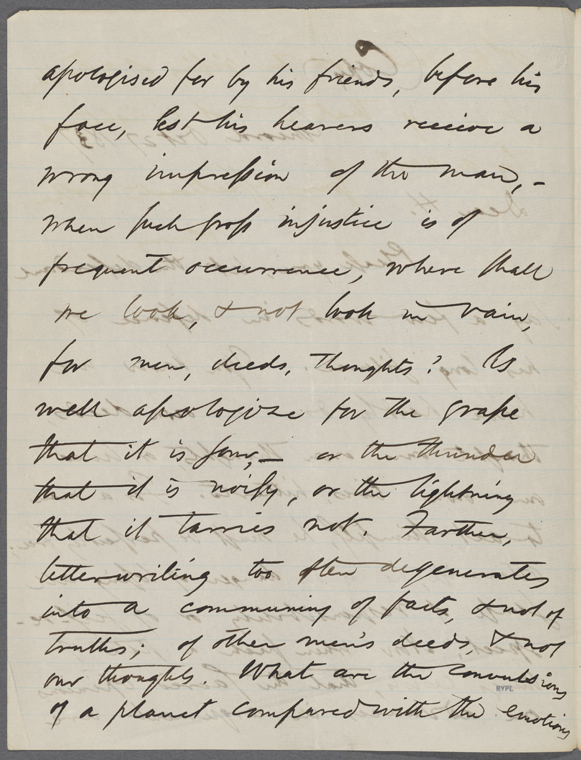 apologised for by his friends, before his
face, lest his hearers receive a
wrong impression of the man,—
when such gross injustice is of
frequent occurrence, where shall
we look, & not look in vain,
for men, deeds, thoughts? As
well apologize for the grape
that it is sour,— or the thunder
that it is noisy, or the lightning
that it tarries not. Farther,
letterwriting too often degenerates
into a communing of facts, & not of
truths; of other men's deeds, & not
our thoughts. What are the convulsions
NYPL
of a planet compared with the emotions